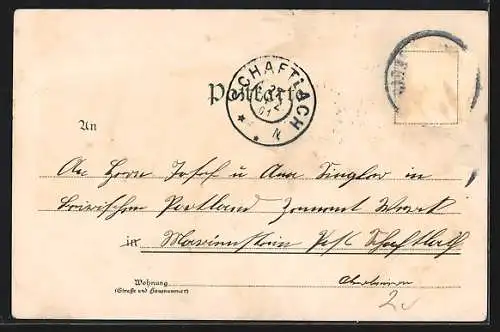 Postkarte
SCHAFTLACH
An
An Herrn Josef u Ana Singlor in
Portland Zement Werk
in Marienstein Post Schaftlach
Wohnung
(Strasse und Hausnummer)